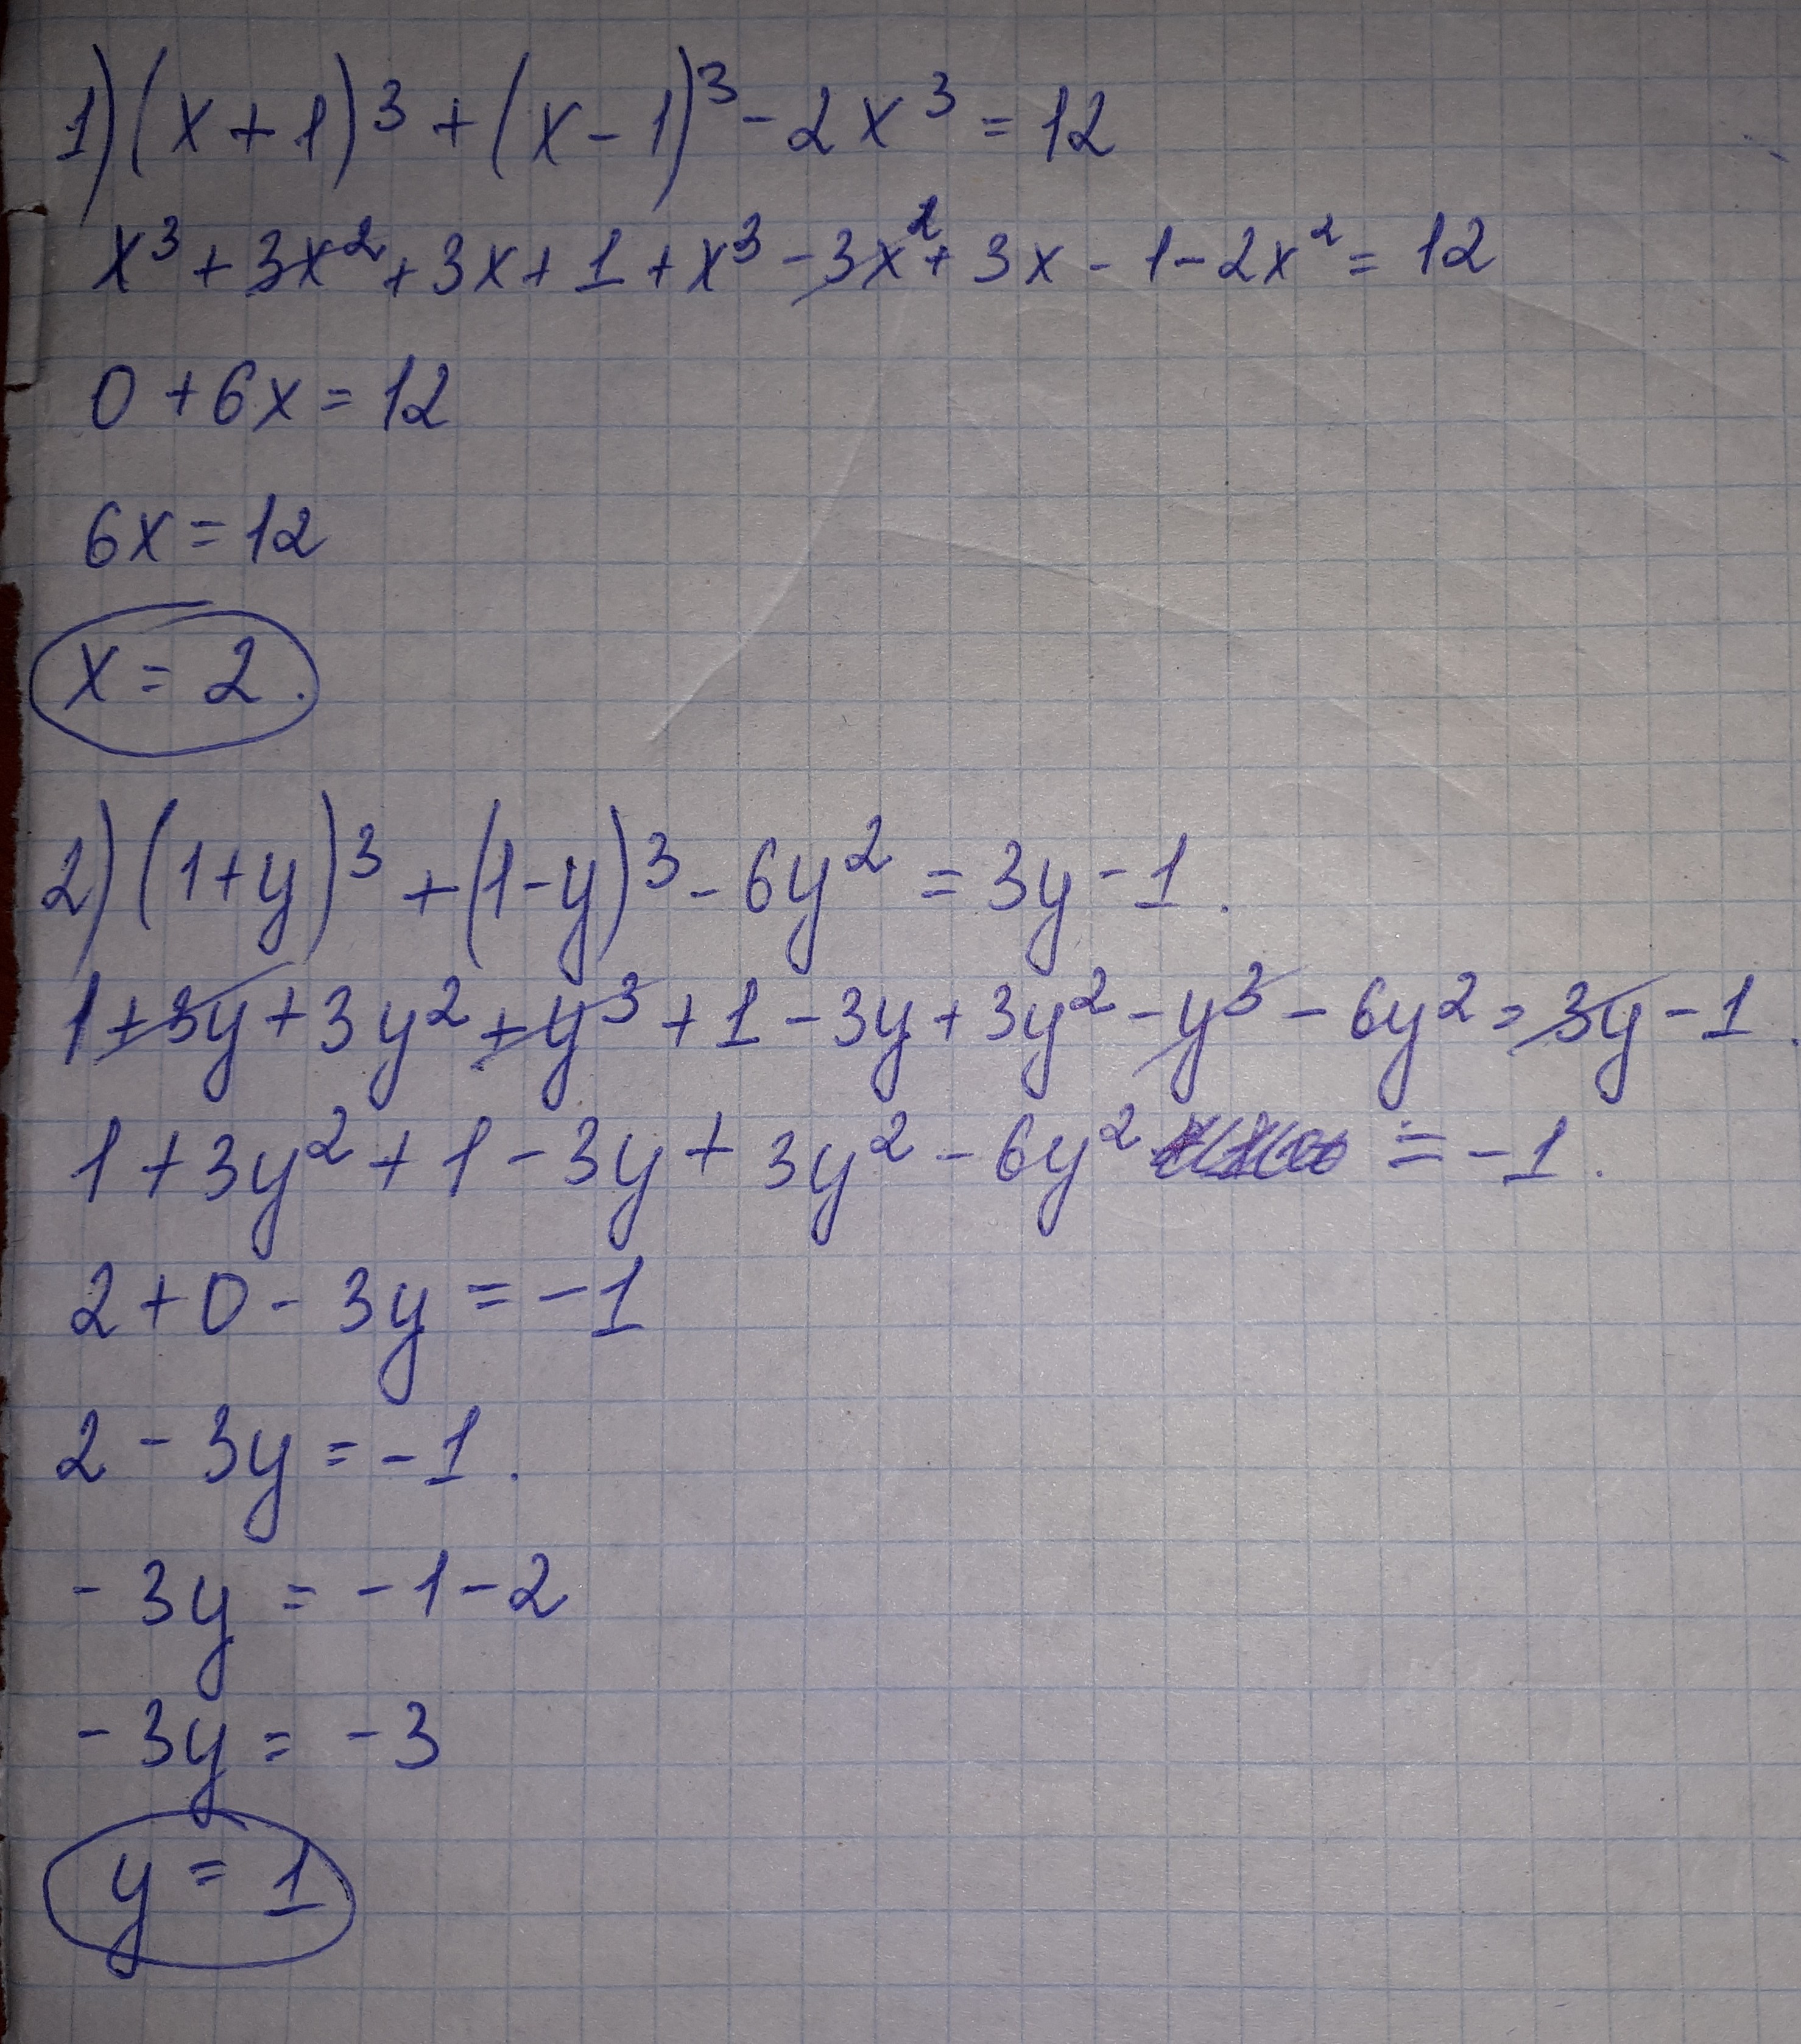 1) (x+1)³ + (x-1)³ - 2x³ = 12
x³ + 3x² + 3x + 1 + x³ - 3x² + 3x - 1 - 2x² = 12
0 + 6x = 12
6x = 12
x = 2.
2) (1+y)³ + (1-y)³ - 6y² = 3y - 1.
1 + 3y + 3y² + y³ + 1 - 3y + 3y² - y³ - 6y² = 3y - 1.
1 + 3y² + 1 - 3y + 3y² - 6y² = -1.
2 + 0 - 3y = -1
2 - 3y = -1.
-3y = -1-2
-3y = -3
y = 1